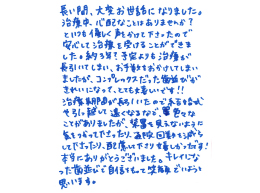 長い間、大変お世話になりました。
治療中、心配なことはありませんか?
といつも優しく声をかけて下さったので
安心して治療を受けることができま
した。約3年?予定よりも治療が
長引いてしまい、お手数をおかけしてしまい
ましたが、コンプレックスだった歯並びが
きれいになって、とても嬉しいです!!
治療期間が長引いたので本百を始め
引越して遠くなるなど、色々な
ことがありましたが、保置を見えないように
気をつかって下さったり、通院回数を減らし
て下さったり、配慮して下さり嬉しかったです!
本当にありがとうございました。キレイになっ
た歯並びで自信をもって笑顔でいようと
思います。